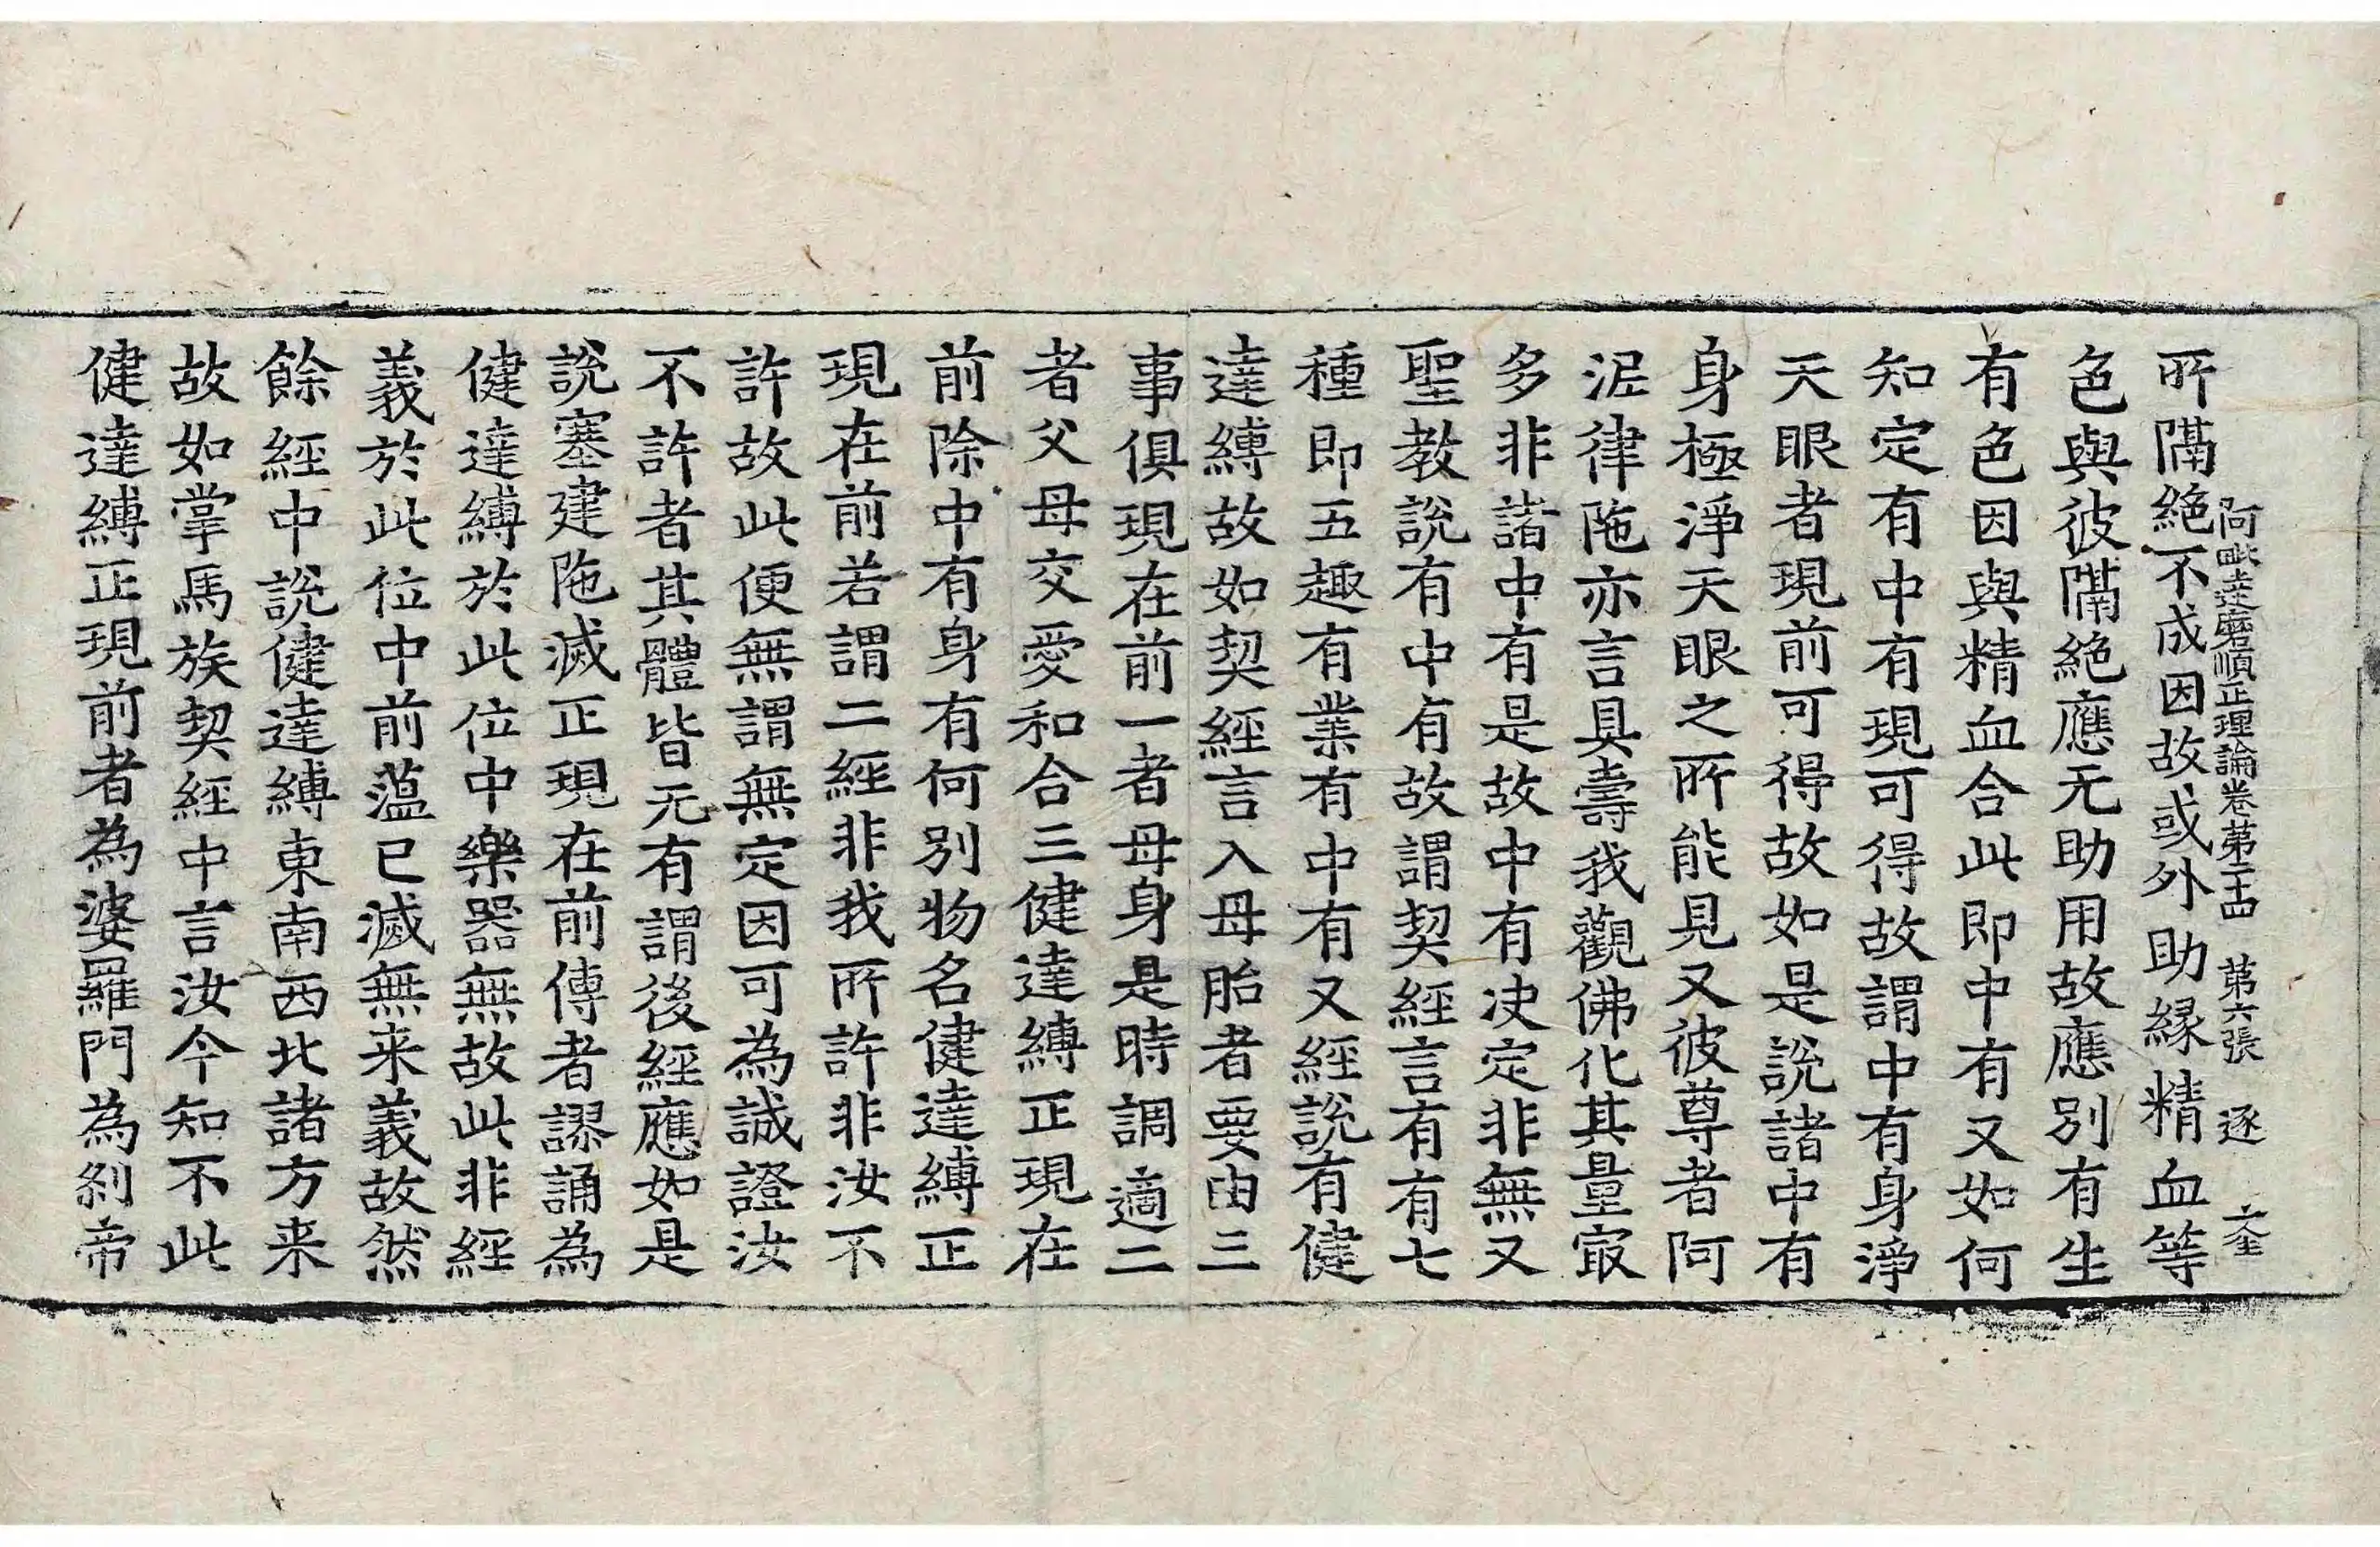 阿毗達磨順正理論卷第二十四　第六張　逐　奎
所隔絶不成因故或外助縁精血等
色與彼隔絶應无助用故應別有生
有色因與精血合此即中有又如何
知定有中有現可得故謂中有身淨
天眼者現前可得故如是說諸中有
身極淨天眼之所能見又彼尊者阿
泥律陁亦言具壽我觀佛化其量㝡
多非諸中有是故中有决定非無又
聖教說有中有故謂契經言有有七
種即五趣有業有中有又經說有健
達縛故如契經言入母胎者要由三
事俱現在前一者母身是時調適二
者父母交愛和合三健達縛正現在
前除中有身有何別物名健達縛正
現在前若謂二經非我所許非汝不
許故此便無謂無定因可為誠證汝
不許者其體皆无有謂後經應如是
說塞建陁滅正現在前傳者謬誦為
健達縛於此位中樂器無故此非經
義於此位中前薀已滅無来義故然
餘經中說健達縛東南西北諸方来
故如掌馬族契經中言汝今知不此
健達縛正現前者為婆羅門為剎帝